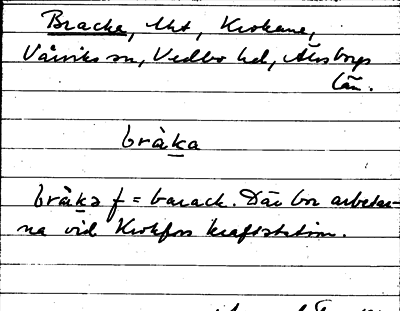 Bracke, tht, Krokane,
Vårviks sn, Vedbo hd, Älvsborgs
län.
bràka
bràkə f = barack. Där bor arbetar-
na vid Krokfors kraftstation.